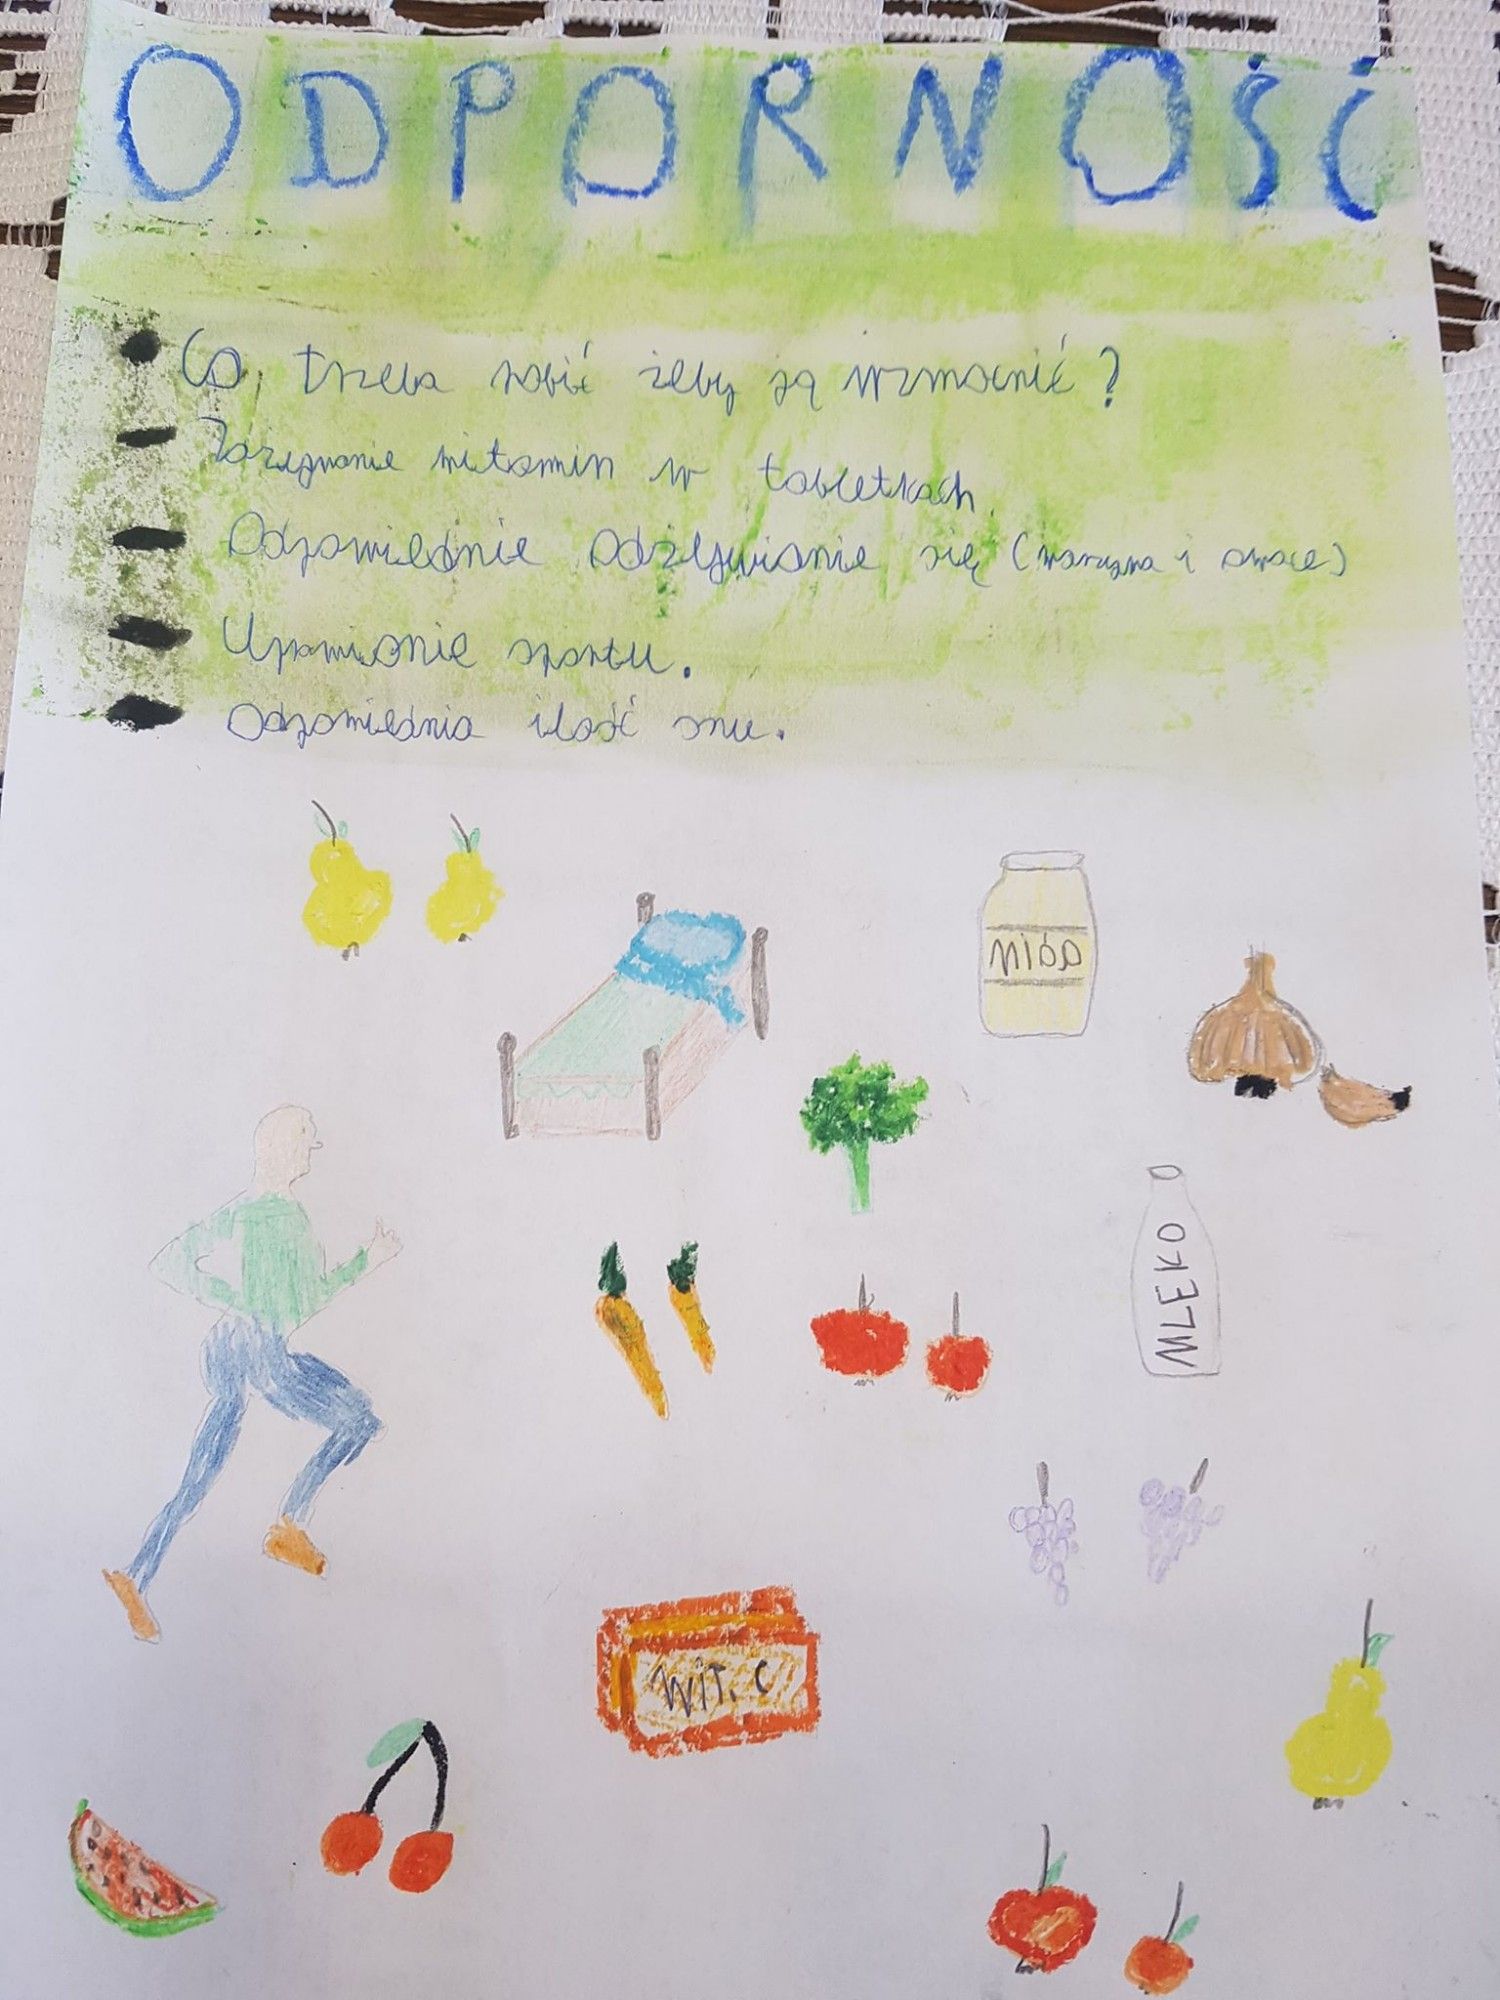 ODPORNOŚĆ
Co trzeba robić żeby ją wzmocnić?
Zażywanie witamin w tabletkach.
Odpowiednie odżywianie się (warzywa i owoce)
Uprawianie sportu.
Odpowiednia ilość snu.
MIÓD
MLEKO
WIT. C